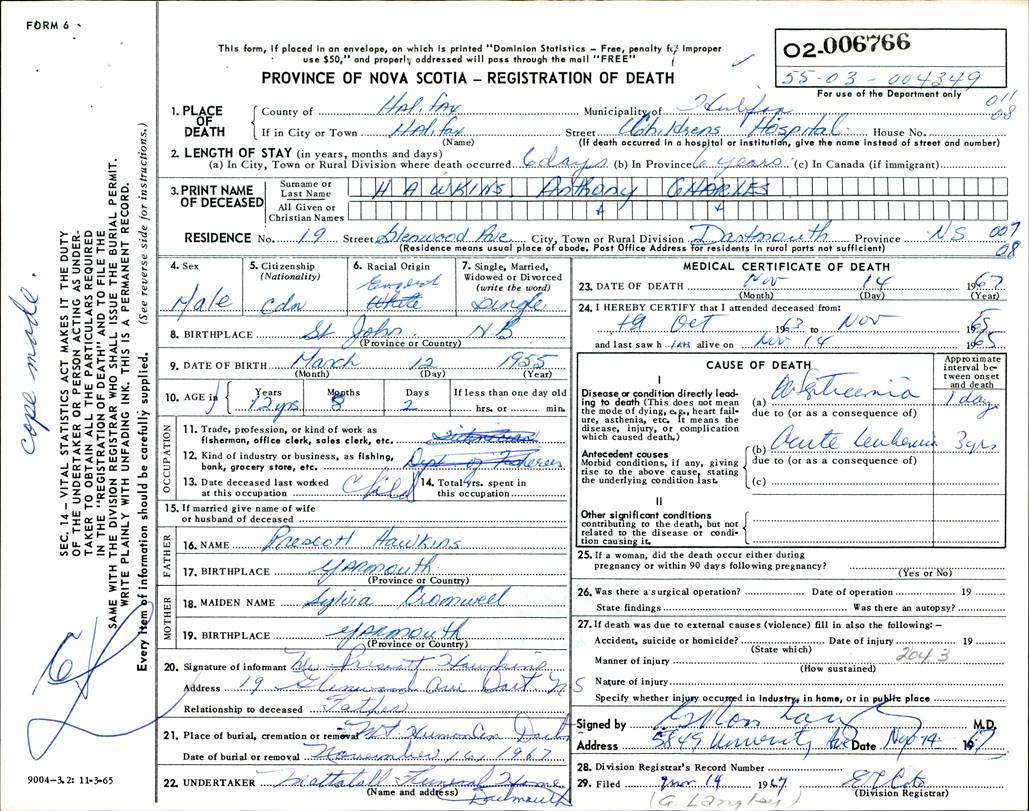 FORM 6
This form, if placed in an envelope, on which is printed "Dominion Statistics – Free, penalty for improper
use $50," and properly addressed will pass through the mail "FREE"
PROVINCE OF NOVA SCOTIA – REGISTRATION OF DEATH
02-006766
55-03-004349
For use of the Department only
011
08
1. PLACE OF DEATH
County of Halifax Municipality of Halifax
If in City or Town Halifax Street Childrens Hospital House No.
(Name) (If death occurred in a hospital or institution, give the name instead of street and number)
2. LENGTH OF STAY (in years, months and days)
(a) In City, Town or Rural Division where death occurred 6 days (b) In Province 6 years (c) In Canada (if immigrant)
3. PRINT NAME OF DECEASED
Surname or Last Name HAWKINS, Anthony CHARLES
All Given or Christian Names
RESIDENCE No. 19 Street Glenwood Ave City, Town or Rural Division Dartmouth Province NS 007
08
(Residence means usual place of abode. Post Office Address for residents in rural parts not sufficient)
4. Sex Male
5. Citizenship (Nationality) Cdn
6. Racial Origin English White
7. Single, Married, Widowed or Divorced (write the word) Single
8. BIRTHPLACE St John N.B
(Province or Country)
9. DATE OF BIRTH March 12 1955
(Month) (Day) (Year)
10. AGE in Years 12 yrs Months 8 Days 2 If less than one day old hrs. or min.
OCCUPATION
11. Trade, profession, or kind of work as fisherman, office clerk, sales clerk, etc.
12. Kind of industry or business, as fishing, bank, grocery store, etc. Dept of Fisheries
13. Date deceased last worked at this occupation Child 14. Total yrs. spent in this occupation
15. If married give name of wife or husband of deceased
FATHER
16. NAME Prescott Hawkins
17. BIRTHPLACE Yarmouth
(Province or Country)
MOTHER
18. MAIDEN NAME Sylvia Cromwell
19. BIRTHPLACE Yarmouth
(Province or Country)
20. Signature of informant Mr. Prescott Hawkins
Address 19 Glenwood Ave Dart. N S
Relationship to deceased Father
21. Place of burial, cremation or removal Mt Hermon Cem Dart
Date of burial or removal November 16, 1967
22. UNDERTAKER Mattatall Funeral Home
(Name and address) Dartmouth
MEDICAL CERTIFICATE OF DEATH
23. DATE OF DEATH Nov 14 1967
(Month) (Day) (Year)
24. I HEREBY CERTIFY that I attended deceased from:
19 Oct 1963 to Nov 1965
and last saw him alive on Nov 14 1965
CAUSE OF DEATH
Approximate interval between onset and death
I
Disease or condition directly leading to death (This does not mean the mode of dying, e.g., heart failure, asthenia, etc. It means the disease, injury, or complication which caused death.)
(a) 1 day
due to (or as a consequence of)
Antecedent causes
Morbid conditions, if any, giving rise to the above cause, stating the underlying condition last.
(b) Acute Leukemia 3 yrs
due to (or as a consequence of)
(c)
II
Other significant conditions
contributing to the death, but not related to the disease or condition causing it.
25. If a woman, did the death occur either during pregnancy or within 90 days following pregnancy?
(Yes or No)
26. Was there a surgical operation? Date of operation 19
State findings Was there an autopsy?
27. If death was due to external causes (violence) fill in also the following: –
Accident, suicide or homicide? Date of injury 19
(State which) 204.3
Manner of injury
(How sustained)
Nature of injury
Specify whether injury occurred in industry, in home, or in public place
Signed by M.D.
Address 5849 University Ave Date Nov 14 1967
28. Division Registrar's Record Number
29. Filed Nov 14 1967
(Division Registrar)
(G. Langley)
SEC. 14 – VITAL STATISTICS ACT MAKES IT THE DUTY
OF THE UNDERTAKER OR PERSON ACTING AS UNDER-
TAKER TO OBTAIN ALL THE PARTICULARS REQUIRED
IN THE "REGISTRATION OF DEATH" AND TO FILE THE
SAME WITH THE DIVISION REGISTRAR WHO SHALL ISSUE THE BURIAL PERMIT.
WRITE PLAINLY WITH UNFADING INK. THIS IS A PERMANENT RECORD.
Every item of information should be carefully supplied. (See reverse side for instructions.)
cope made.
9004-3.2: 11-3-65